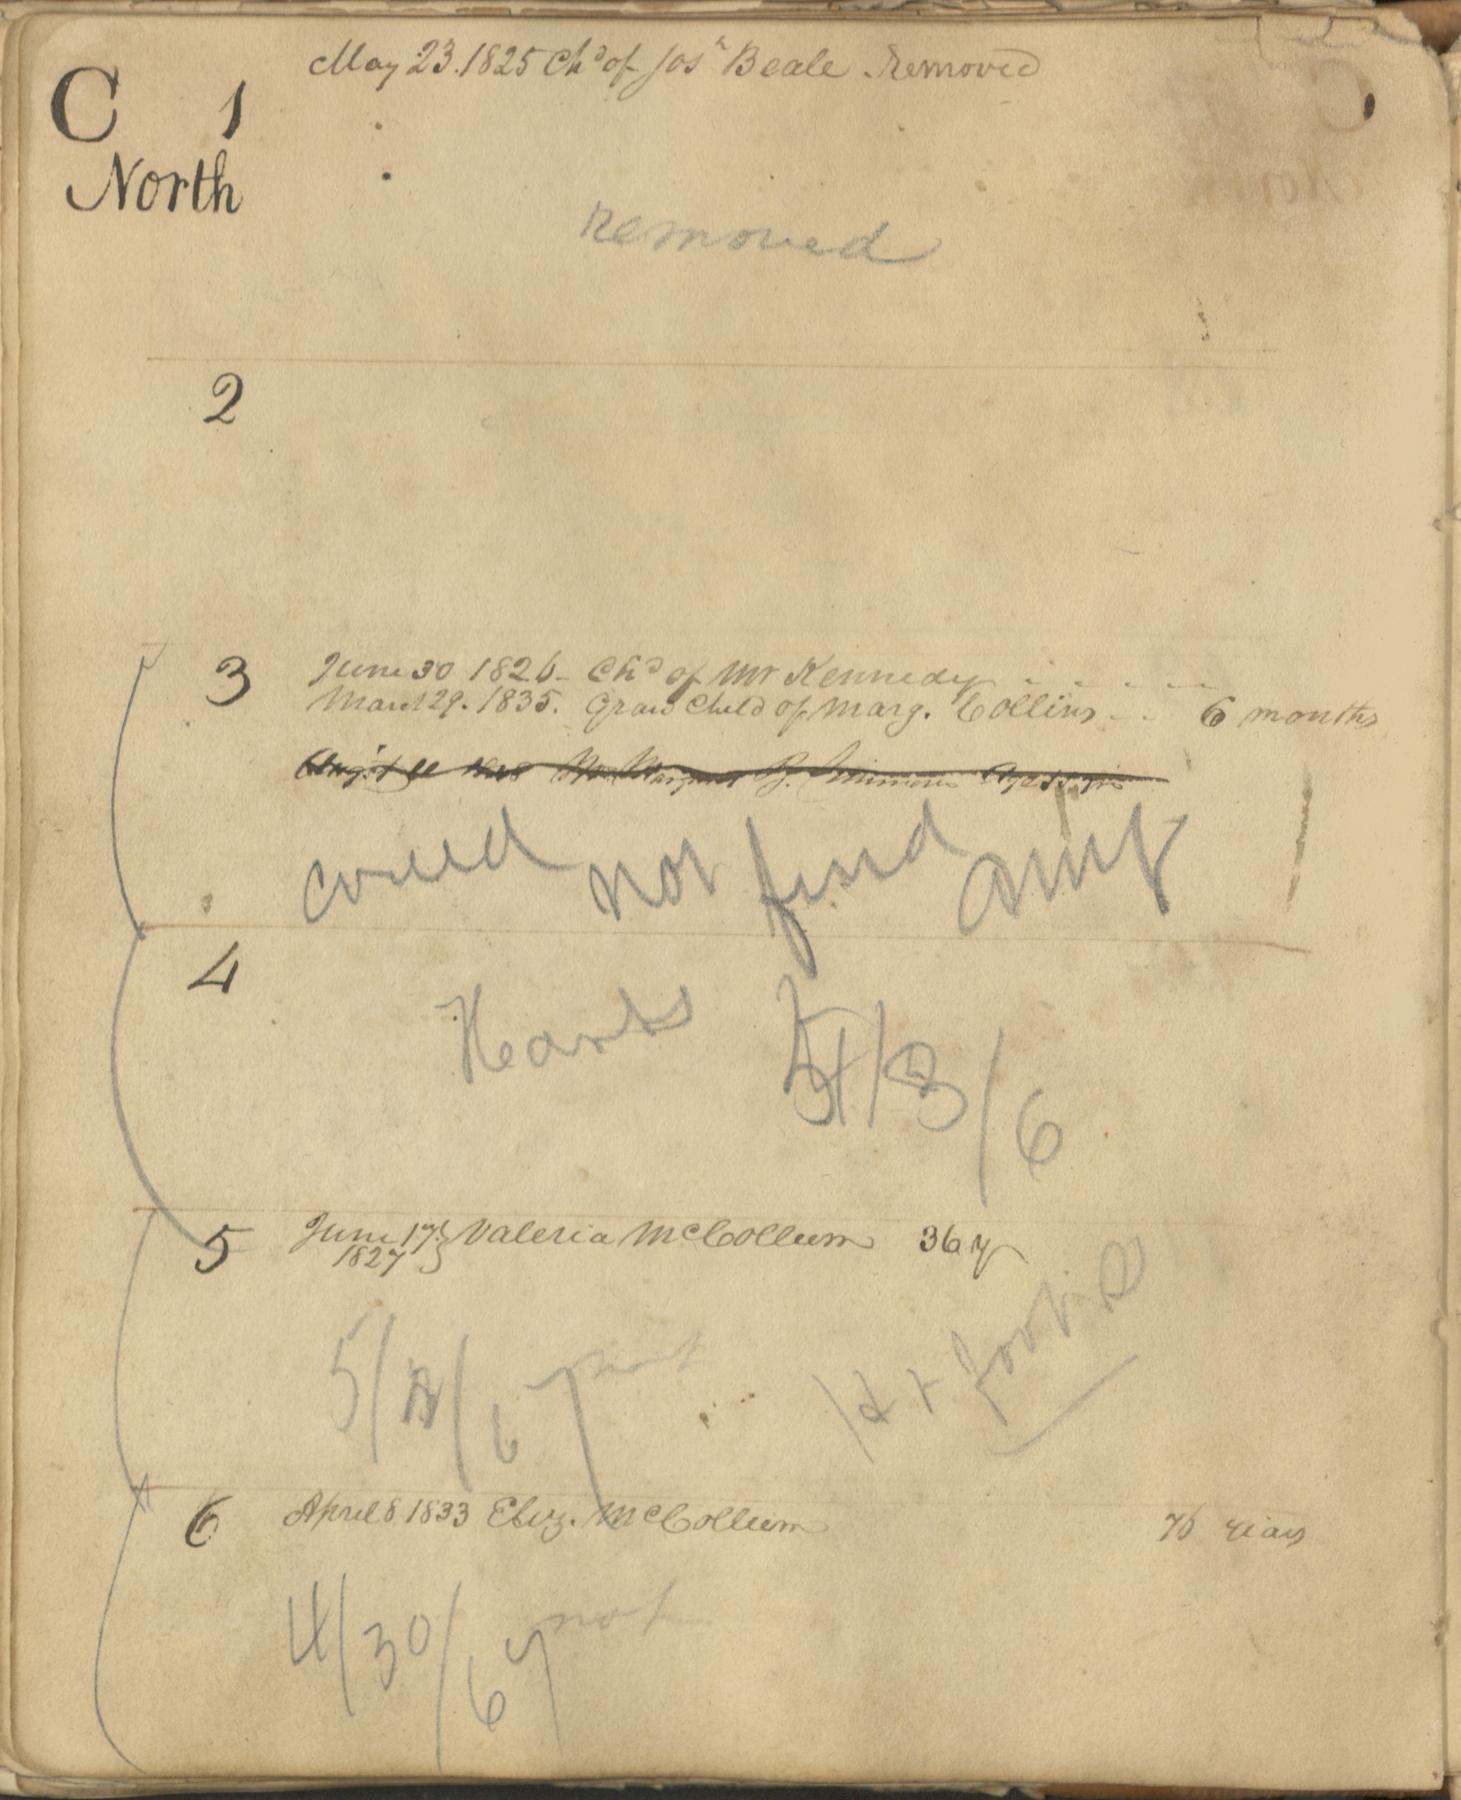 May 23. 1825 Chd of Josh Beale. Removed
C 1
North
Removed
2
3 June 30 1826 - Chd of Mr Kennedy
March 29. 1835. Gran Child of Marg. Collins 6 months
could not find
4
Hearts
6
5 June 17 } Valeria McCollum 36 y
1827
5/ /6 not
6 April 8 1833 Eliz. McCollum 76 years
4/30/6 not